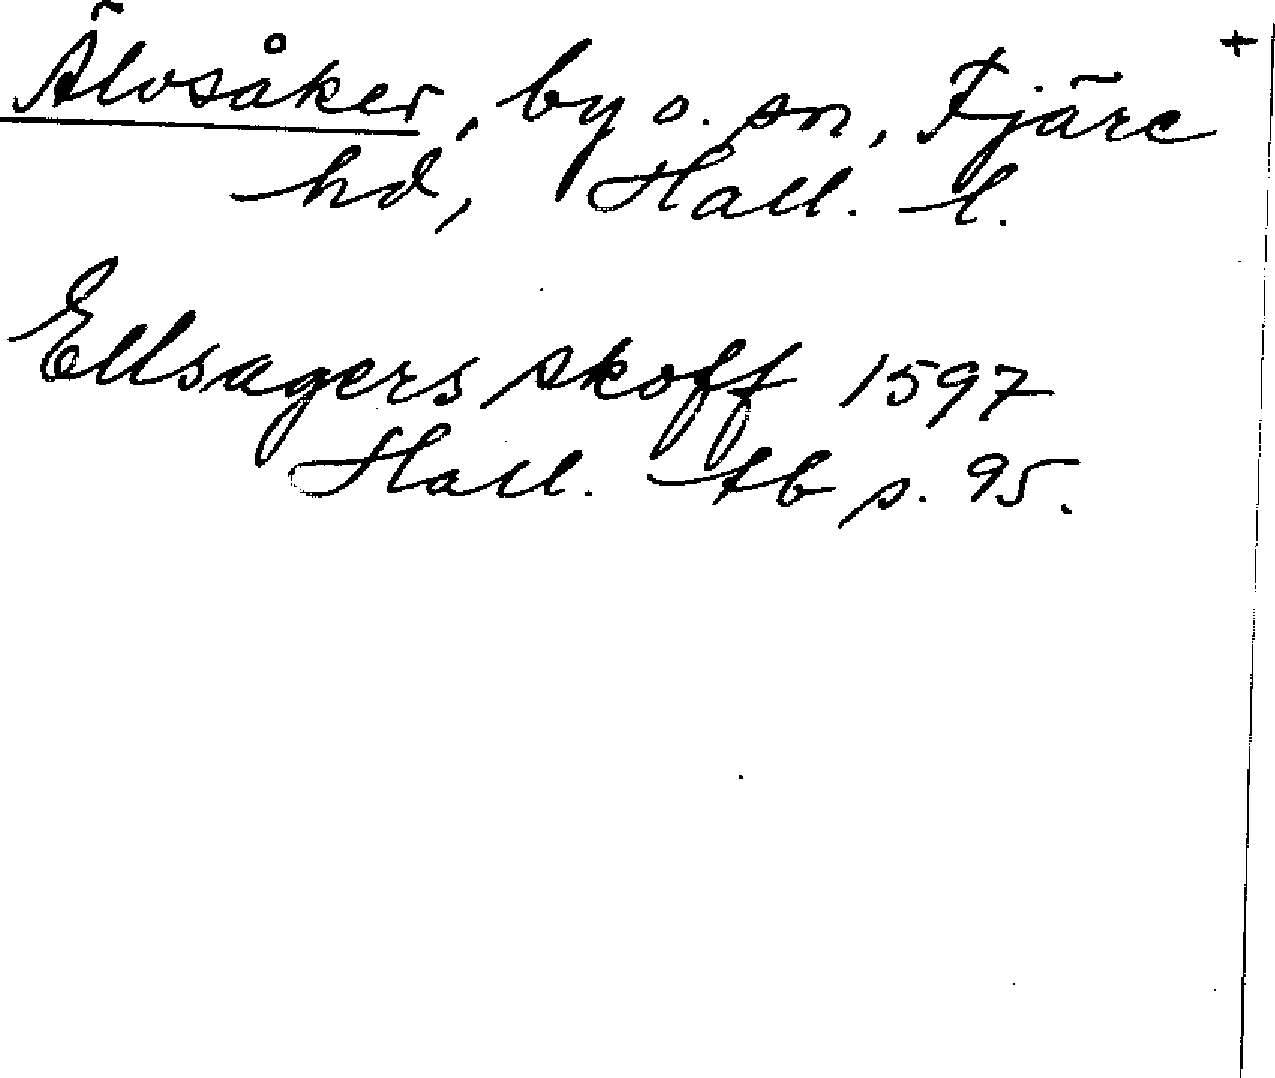 Älvsåker, by o. sn, Fjäre +
hd, Hall. l.
Ellsagers skoff 1597
Hall. tb s. 95.